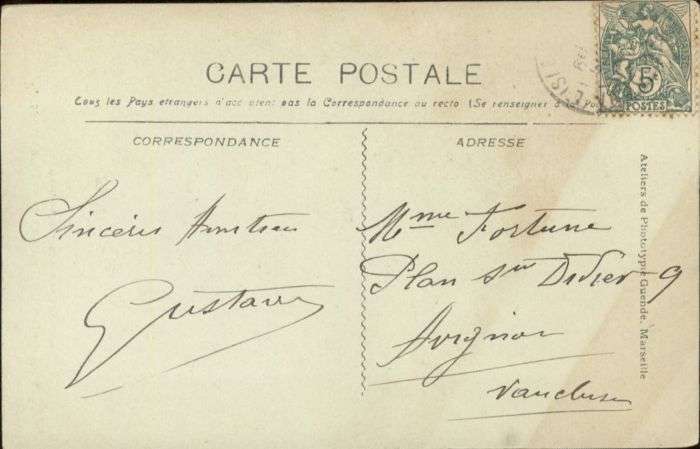 CARTE POSTALE
Tous les Pays étrangers n'acceptent pas la Correspondance au recto (Se renseigner à la
CORRESPONDANCE
ADRESSE
Sincères Amitiés
Gustave
Mme Fortune
Plan St Didier 9
Avignon
Vaucluse
Ateliers de Phototypie Guende, Marseille
5
POSTES